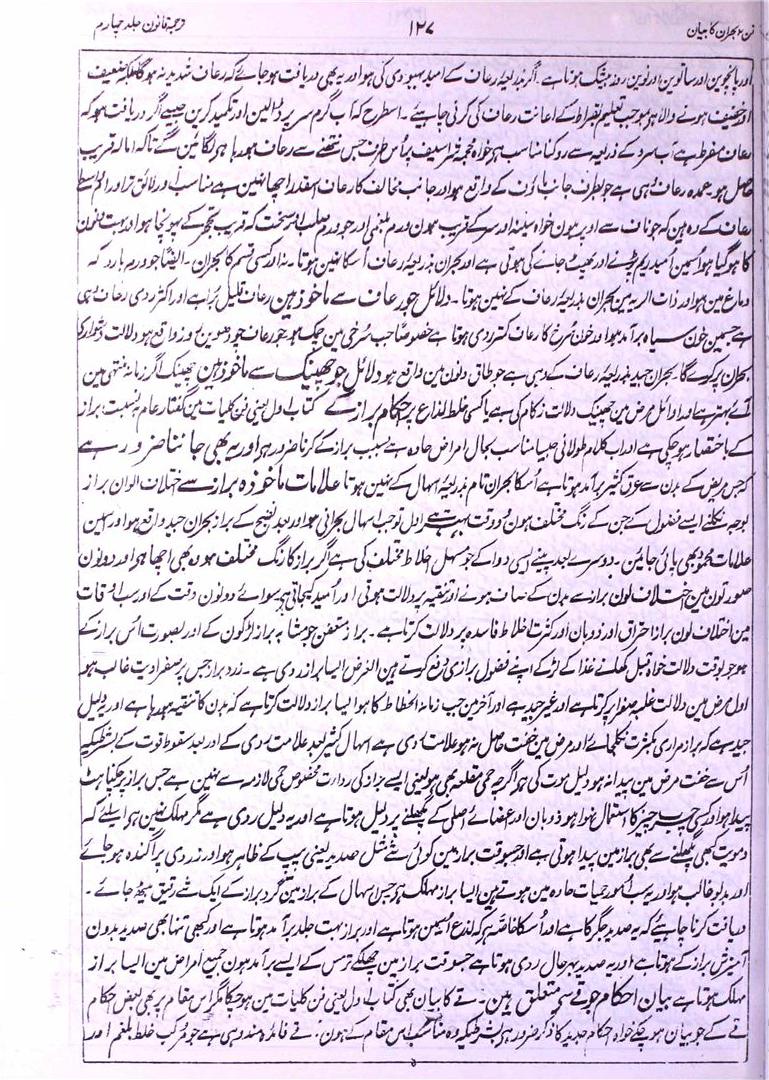 فن ۲ بحران کا بیان ۱۲۷ ترجمہ قانون جلد چہارم
اور پانچوین اور ساتوین اور نوین روز بیشک ہوتا ہے۔ اگر بذریعہ رعاف کے امید بہبودی کی ہو اور یہ بھی دریافت ہو جائے کہ رعاف شدید نہ ہوگا بلکہ ضعیف
اور خفیف ہونے والا ہو بموجب تعلیم بقراط کے اعانت رعاف کی کرنی چاہیے۔ اسطرح کہ آب گرم سر پر ڈالین اور تکمید کرین جیسے اگر دریافت ہو کہ
رعاف مفرط ہے آب سرد کے ذریعہ سے روکنا مناسب ہو خواہ محجمہ شراسیف پر اُس طرف جس نتھنے سے رعاف ہو رہا ہی لگائین گے تاکہ امالہ قریب
حاصل ہو۔ عمدہ رعاف وہی ہے جو بطرف جانب ماؤف کے واقع ہو اور جانب مخالف کا رعاف اسقدر اچھا نہین ہے مناسب اور لائق تر اورام واسطے
رعاف کے وہ ہین کہ جو ناف سے اوپر ہون خواہ سینہ اور سر کے قریب ہون ورم بلغمی اور جو ورم صلب اور سخت کہ قریب تحجر کے پہونچا ہو اور بہت دنون
کا ہو گیا ہو اُسمین امید ریم پڑنے اور پھٹ جانے کی ہوتی ہے اور بحران بذریعہ رعاف اُسکا نہین ہوتا۔ نہ اور کسی قسم کا بحران۔ ایضًا جو ورم بارد کہ
دماغ مین ہو اور ذات الریہ مین بحران بذریعہ رعاف کے نہین ہوتا۔ دلائل جو رعاف سے ماخوذ ہین رعاف قلیل بُرا ہے اور اکثر ردی رعاف وہی
ہے جسمین خون سیاہ برآمد ہو اور خون سُرخ کا رعاف کمتر ردی ہوتا ہے خصوصًا جب سُرخی مین چمک ہو جو رعاف چوتھوین روز واقع ہو دلالت دشواری
بحران پر کرے گا۔ بحران جید بذریعہ رعاف کے وہی ہے جو طاق دنون مین واقع ہو دلائل جو چھینک سے ماخوذ ہین چھینک اگر زمانہ منتہی مین
آئے بہتر ہے اور اوائل مرض مین چھینک دلالت زکام کی ہے یا کسی خلط لذاع پر احکام براز کے کتاب اول یعنی فن کلیات مین گفتار عام بہ نسبت براز
کے باختصار ہو چکی ہے اور اب کلام طولانی جیسا مناسب بحال امراض حادہ ہے بسبب براز کے کرنا ضرور ہو اور یہ بھی جاننا ضرور ہے
کہ جس مریض کے بدن سے عرق کثیر برآمد ہوتا ہے اُسکا بحران تام بذریعہ اسہال کے نہین ہوتا علامات ماخوذہ براز سے اختلاف الوان براز
بوجہ نکلنے ایسے فضول کے جن کے رنگ مختلف ہون دو وقت بہت ہے اول تو جب اسہال بحرانی ہو اور بعد نضج کے براز بحران جید واقع ہو اور سہین
علامات محمود بھی پائی جائین۔ دوسرے بعد پینے ایسی دوا کے جو مسہل اخلاط مختلف کی ہے اگر براز کا رنگ مختلف ہو وہ بھی اچھا ہی اور دونون
صورتون مین اختلاف لون براز سے بدن کے صاف ہونے اور تنقیہ پر دلالت ہوتی اور اُمید کیجاتی ہے سوائے دونون وقت کے اور سب اوقات
مین اختلاف لون براز احتراق اور ذوبان اور کثرت اخلاط فاسدہ پر دلالت کرتا ہے۔ براز متعفن جو مشابہ براز لڑکون کے اور بصورت اُس براز کے
ہو جو بوقت ولادت خواہ قبل کھلانے غذا کے لڑکے اپنے فضول برازی دفع کرتے ہین الغرض ایسا براز ردی ہے۔ زرد براز جس پر صفراویت غالب ہو
اول مرض مین دلالت غلبہ صفرا پر کرتا ہے اور غیر جید ہے اور آخر مین جب زمانہ انحطاط کا ہو ایسا براز دلالت کرتا ہے کہ بدن کا تنقیہ ہو رہا ہے اور یہ دلیل
جید ہے کہ براز مراری بکثرت نکل جائے اور مرض مین خفت حاصل نہ ہو علامت ردی ہے اسہال کثیر بعد علامت ردی کے اور بعد سقوط قوت کے بشرطیکہ
اُس سے خفت مرض مین پیدا نہ ہو دلیل موت کی ہو اگرچہ حمی مقلعہ بھی ہو یعنی ایسے براز کی رداءت مخصوص حمی لازمہ سے نہین ہے جس براز پر چکناہٹ
پیدا ہو اور کسی چرب چیز کا استعمال نہوا ہو ذوبان اور اعضائے اصلی کے گھلنے پر دلیل ہوتا ہے اور یہ دلیل ردی ہے مگر مہلک نہین ہی اسلیے کہ
دسومت کبھی گھلنے سے بھی براز مین پیدا ہوتی ہے اور جسوقت براز مین کوئی شے مثل صدید یعنی پیپ کے ظاہر ہو اور زردی پراگندہ ہو جائے
اور بدبو غالب ہو اور یہ سب اُمور حمیات حادہ مین ہوتے ہین ایسا براز مہلک ہو جس اسہال کے براز مین گرد براز کے ایک شے رقیق بیٹھ جائے۔
دریافت کرنا چاہیئے کہ یہ صدید جگر کا ہے اور اُسکا خاصہ ہے کہ لذع اُسمین ہوتا ہے اور براز بہت جلد برآمد ہوتا ہے اور کبھی تنہا بھی صدید بدون
آمیزش براز کے ہوتا ہے اور یہ صدید بہرحال ردی ہوتا ہے جسوقت براز مین چھلکے ترمس کے ایسے برآمد ہون جمیع امراض مین ایسا براز
مہلک ہوتا ہے بیان احکام جو قے سے متعلق ہین۔ قے کا بیان بھی کتاب اول یعنی فن کلیات مین ہو چکا مگر اس مقام پر بھی بعض احکام
قے کے جو بیان ہو چکے خواہ احکام جدید کا ذکر ضرور ہی بشرطیکہ وہ مناسب اس مقام کے ہون۔ قے فائدہ مند وہی ہے جو مرکب خلط بلغم اور